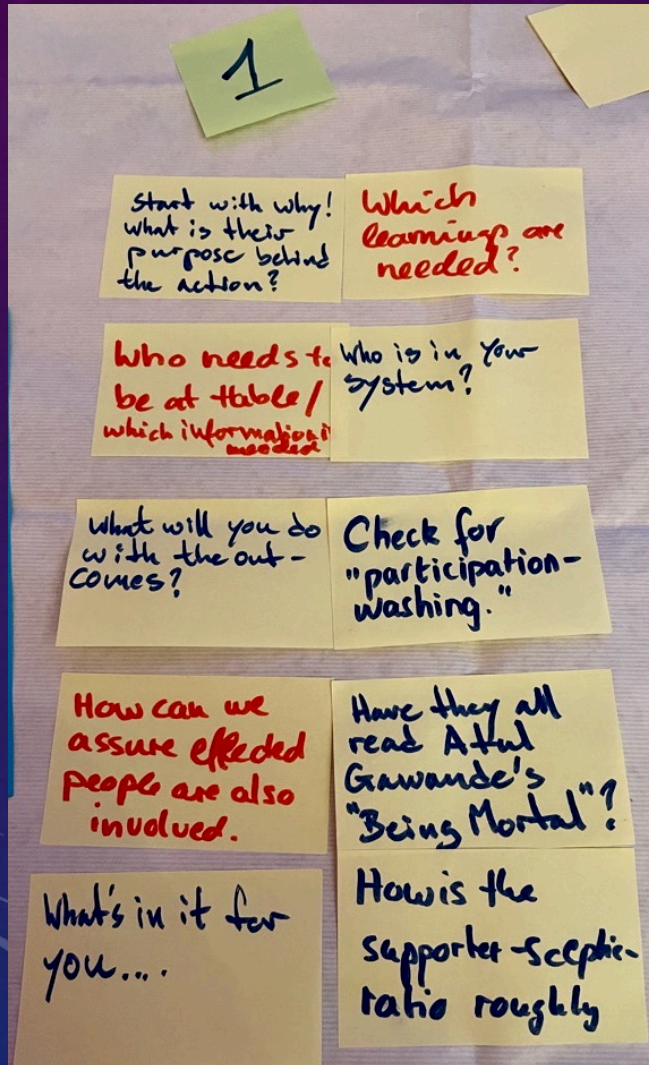 1
Start with why!
what is their
purpose behind
the action?
Which
learnings are
needed?
Who needs to
be at ttable/
which information i
needed
Who is in your
system?
What will you do
with the out-
comes?
Check for
"participation-
washing."
How can we
assure effected
people are also
involved.
Have they all
read Atul
Gawande's
"Being Mortal"?
What's in it for
you....
How is the
supporter-sceptic-
ratio roughly